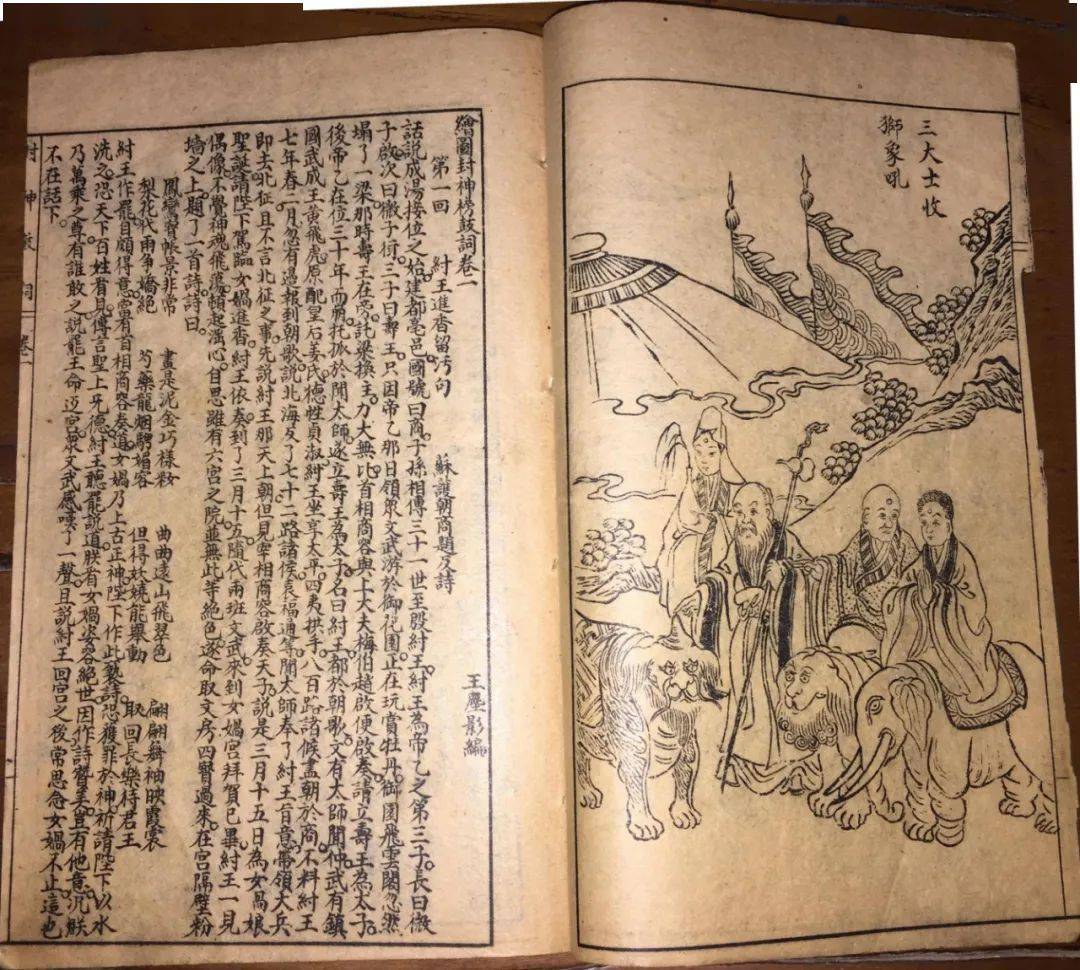 三大士收
獅象吼
繪圖封神榜鼓詞卷一
第一回 紂王進香留污句 蘇護朝商題反詩 王塵影編
話說成湯接位之始建都亳邑國號曰商子孫相傳三十一世至殷紂王紂王為帝乙之第三子長曰微
子啟次曰微子衍三子曰壽王只因帝乙那日領眾文武游於御花園正在玩賞牡丹御園飛雲閣忽然
塌了一梁那時壽王在旁託梁換主力大無比首相商容與上大夫梅伯趙啟便啟奏請立壽王為太子
後帝乙在位三十年而崩托孤於聞太師遂立壽王為太子名曰紂王都於朝歌文有太師聞仲武有鎮
國武成王黃飛虎原配皇后姜氏德性貞淑紂王坐享太平四夷拱手八百路諸侯盡朝於商不料紂王
七年春二月忽有過報到朝歌說北海反了七十二路諸侯袁福通等聞太師奉了紂王旨意帶領大兵
即去北征且不言北征之事先說紂王那天上朝但見宰相商容啟奏天子說是三月十五日為女媧娘
聖誕請陛下駕臨女媧進香紂王依奏到了三月十五隨代兩班文武來到女媧宮拜賀已畢紂王一見
偶像不覺神魂飛蕩頓起滛心自思雖有六宮之院並無此等絕色遂命取文房四寶過來在宮隔壁粉
墻之上題了一首詩詩曰
鳳鸞寶帳景非常 畫是泥金巧樣粧 曲曲遠山飛翠色 翩翩舞袖映霞裳
梨花代雨爭嬌絕 芍藥籠烟騁媚容 但得妖嬈能舉動 取回長樂侍君王
紂王作罷自顧得意當有首相商容奏道女媧乃上古正神陛下作此褻詩恐獲罪於神祈請陛下以水
洗之恐天下百姓有見傳言聖上旡德紂王聽罷說道朕看女媧姿容絕世因作詩贊美豈有他意况朕
乃萬乘之尊有誰敢之說罷王命迈宮眾文武感嘆了一聲且說紂王回宮之後常思念女媧不止這也
不在話下
封神鼓詞 卷一